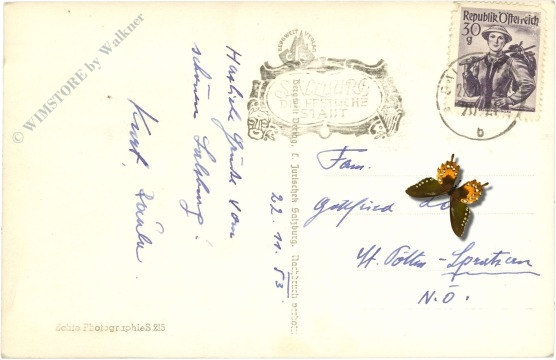 © WIMSTORE by Walkner
Herzliche Grüße vom
schönen Salzburg!
Kurt,
Echte Photographie S 215
Bergwelt Verlag C. Jurischek Salzburg. Nachdruck verboten
SALZBURG
DIE
STADT
Republik Österreich
30
g
b
22.11.53.
Fam.
Gottfried
St. Pölten - Spratzern
N.Ö.